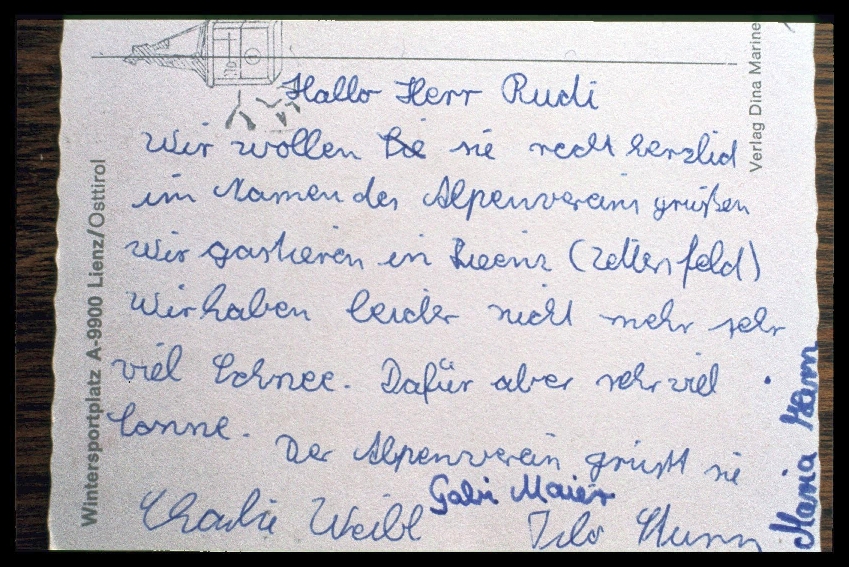 Hallo Herr Rudi
Wir wollen sie recht herzlich
im Namen des Alpenvereins grüßen
Wir gastieren in Lienz (Zettersfeld)
Wir haben leider nicht mehr sehr
viel Schnee. Dafür aber sehr viel
Sonne.
Der Alpenverein grüsst sie
Gabi Maier
Charlie Weibl
Maria
Wintersportplatz A-9900 Lienz/Osttirol
Verlag Dina Marine